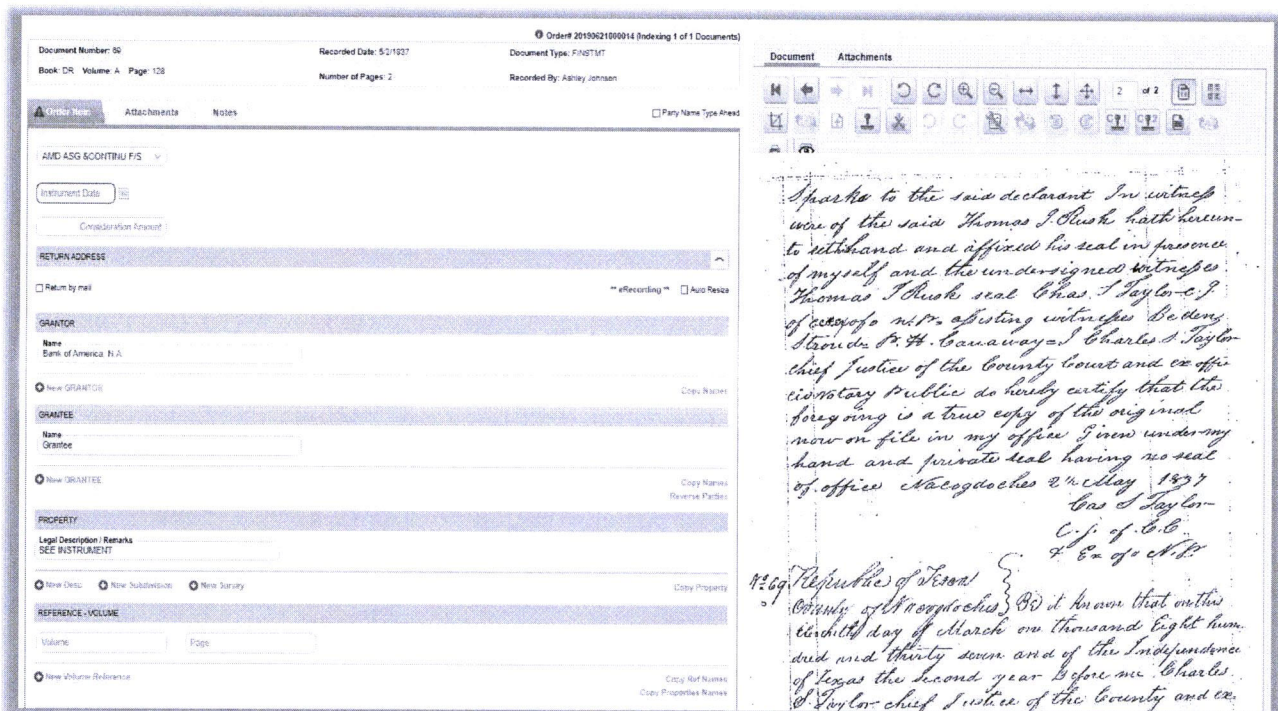 Order# 20190621000014 (Indexing 1 of 1 Documents)
Document Number: 69
Recorded Date: 5/2/1837
Document Type: FINSTMT
Book: DR Volume: A Page: 128
Number of Pages: 2
Recorded By: Ashley Johnson
Order Item
Attachments
Notes
Party Name Type Ahead
AMD ASG &CONTINU F/S
Instrument Date
Consideration Amount
RETURN ADDRESS
Return by mail
** eRecording **
Auto Resize
GRANTOR
Name
Bank of America N A
New GRANTOR
Copy Names
GRANTEE
Name
Grantee
New GRANTEE
Copy Names
Reverse Parties
PROPERTY
Legal Description / Remarks
SEE INSTRUMENT
New Desc
New Subdivision
New Survey
Copy Property
REFERENCE - VOLUME
Volume
Page
New Volume Reference
Copy Ref Names
Copy Properties Names
Document
Attachments
2 of 2
Sparks to the said declarant In witness
were of the said Thomas J. Rusk hath hereun-
to set hand and affixed his seal in presence
of myself and the undersigned witnesses
Thomas J Rusk seal Chas. S Taylor C. J.
of N. P. assisting witnesses
Stroud P. H. I Charles S. Taylor
chief Justice of the County Court and ex offi
cio Notary Public do hereby certify that the
foregoing is a true copy of the original
now on file in my office Given under my
hand and private seal having no seal
of office Nacogdoches May 1837
Cas S Taylor
C. J. of C. C.
& Ex ofo N. P.
No 69 Republic of Texas
County of Nacogdoches } Be it Known that on this
day of March one thousand Eight hun
dred and thirty seven and of the Independence
of Texas the second year Before me Charles
S. Taylor chief Justice of the County and ex